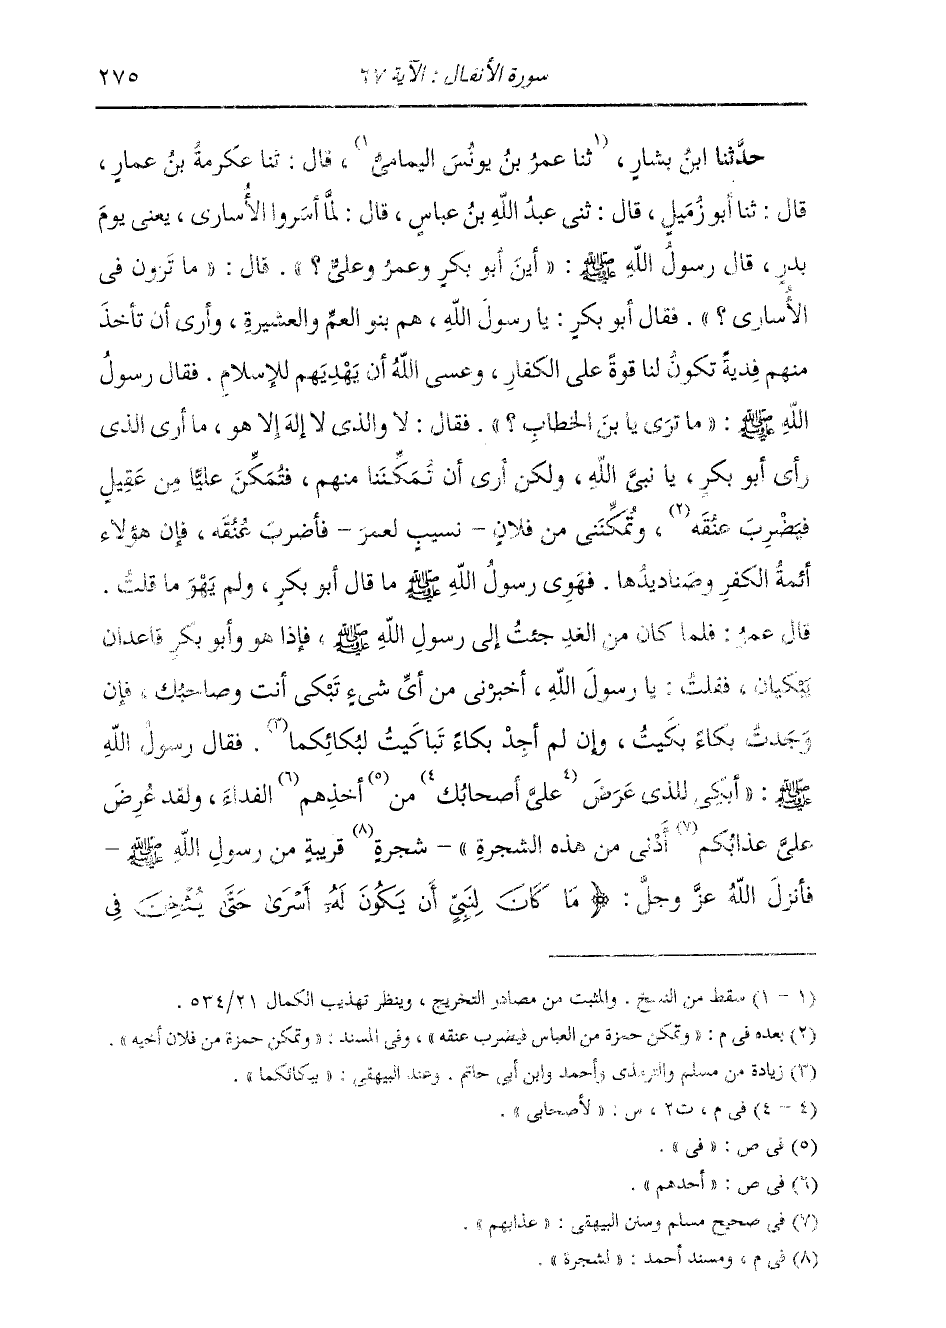 سورة الأنفال : الآية ٦٧ ٢٧٥
حدَّثنا ابنُ بشارٍ ، (١ثنا عمرُ بنُ يونُسَ اليمامىُّ١) ، قال : ثنا عكرمةُ بنُ عمارٍ ،
قال : ثنا أبو زُمَيلٍ ، قال : ثنى عبدُ اللَّهِ بنُ عباسٍ ، قال : لمَّا أَسَروا الأُسارى ، يعنى يومَ
بدرٍ ، قال رسولُ اللَّهِ ﷺ : « أينَ أبو بكرٍ وعمرُ وعلىٌّ ؟ » . قال : « ما تَرَون فى
الأُسارى ؟ » . فقال أبو بكرٍ : يا رسولَ اللَّهِ ، هم بنو العمِّ والعشيرةِ ، وأرى أن تأخذَ
منهم فِديةً تكونُ لنا قوةً على الكفارِ ، وعسى اللَّهُ أن يَهْدِيَهم للإسلامِ . فقال رسولُ
اللَّهِ ﷺ : « ما ترَى يا بنَ الخطابِ ؟ » . فقال : لا والذى لا إلهَ إلا هو ، ما أرى الذى
رأى أبو بكرٍ ، يا نبىَّ اللَّهِ ، ولكن أرى أن تُمَكِّنَنا منهم ، فتُمَكِّنَ عليًّا مِن عَقِيلٍ
فيَضْرِبَ عنقَه(٢) ، وتُمَكِّنَنى من فلانٍ - نسيبٍ لعمرَ - فأضربَ عُنُقَه ، فإن هؤلاء
أئمةُ الكفرِ وصَناديدُها . فهَوِى رسولُ اللَّهِ ﷺ ما قال أبو بكرٍ ، ولم يَهْوَ ما قلتُ .
قال عمرُ : فلما كان من الغدِ جئتُ إلى رسولِ اللَّهِ ﷺ ، فإذا هو وأبو بكرٍ قاعدان
يَبْكيان ، فقلتُ : يا رسولَ اللَّهِ ، أخبرْنى من أىِّ شىءٍ تَبْكى أنت وصاحبُك ، فإن
وَجَدتُ بكاءً بكَيتُ ، وإن لم أجِدْ بكاءً تَباكَيتُ لبُكائِكما(٣) . فقال رسولُ اللَّهِ
ﷺ : « أَبْكِى للذى عَرَضَ (٤علىَّ أصحابُك٤) من(٥) أخذِهم(٦) الفداءَ ، ولقد عُرِضَ
علىَّ عذابُكم(٧) أَدْنى من هذه الشجرةِ » - شجرةٍ(٨) قريبةٍ من رسولِ اللَّهِ ﷺ -
فأنزلَ اللَّهُ عزَّ وجلَّ : ﴿ مَا كَانَ لِنَبِيٍّ أَن يَكُونَ لَهُۥ أَسْرَىٰ حَتَّىٰ يُثْخِنَ فِي
(١ - ١) سقط من النسخ . والمثبت من مصادر التخريج ، وينظر تهذيب الكمال ٥٣٤/٢١ .
(٢) بعده فى م : « وتمكن حمزة من العباس فيضرب عنقه » ، وفى المسند : « وتمكن حمزة من فلان أخيه » .
(٣) زيادة من مسلم والترمذى وأحمد وابن أبى حاتم . وعند البيهقى : « ببكائكما » .
(٤ - ٤) فى م ، ت٢ ، س : « لأصحابى » .
(٥) فى ص : « فى » .
(٦) فى ص : « أحدهم » .
(٧) فى صحيح مسلم وسنن البيهقى : « عذابهم » .
(٨) فى م ، ومسند أحمد : « لشجرة » .